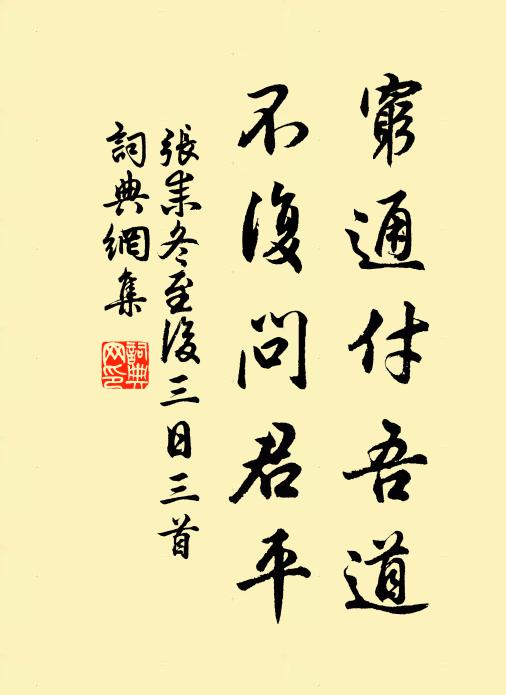 窮通付吾道
不復問君平
張耒冬至後三日三首
詞典網集
詞典網印